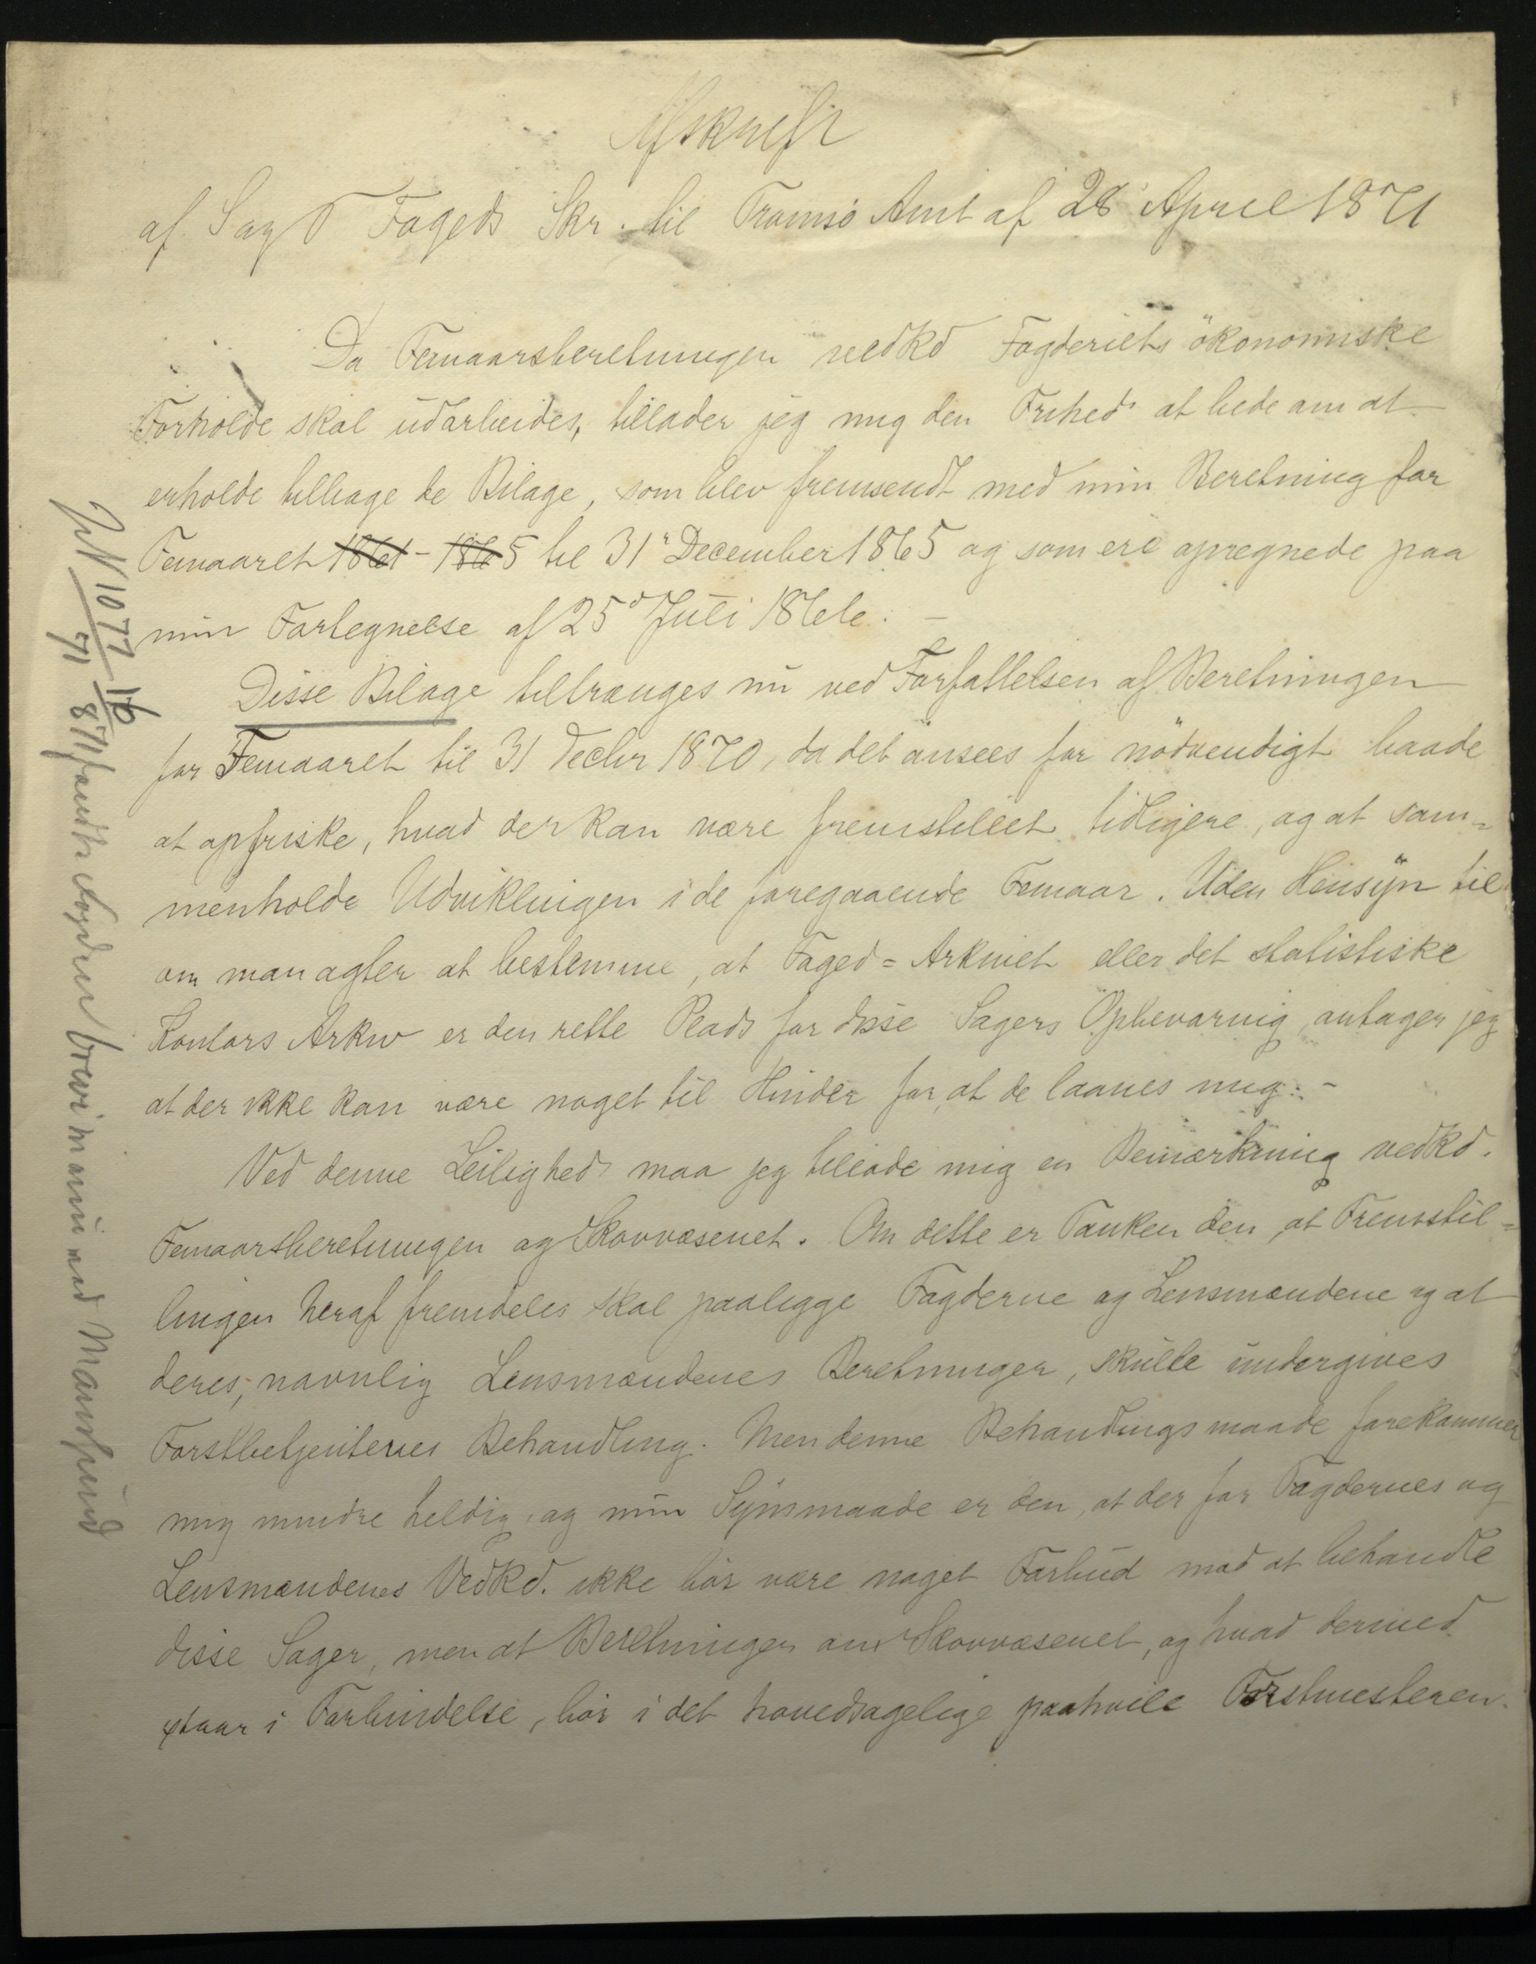 Afskrift
af Fogeds Skr. til Tromsö Amt af 28 April 1871
Da Femaarsberetningen vedkd Fogderiets ökonomiske
Forholde skal udarbeides, tillader jeg mig den Frihed at bede om at
erholde tilbage de Bilage, som blev fremsendt med min Beretning for
Femaaret 1861 - 1865 til 31' December 1865 og som ere opregnede paa
min Fortegnelse af 25d Juli 1866. -
Disse Bilage tiltrænges nu ved Forfattelsen af Beretningen
for Femaaret til 31 Decbr 1870, da det ansees for nödvendigt baade
at opfriske, hvad der kan være fremstillet tidligere, og at sam=
menholde Udviklingen i de foregaaende Femaar. Uden Hensyn til
om man agter at bestemme, at Foged=Arkivet eller det statistiske
Kontors Arkiv er den rette Plads for disse Sagers Opbevaring, antager jeg
at der ikke kan være noget til Hinder for, at de laanes mig. -
Ved denne Leilighed maa jeg tillade mig en Bemærkning vedkd.
Femaarsberetningen og Skovvæsenet. Om dette er Tanken den, at Fremstil=
lingen heraf fremdeles skal paaligge Fogderne og Lensmændene og at
deres, navnlig Lensmændenes Beretninger, skulle undergives
Forstbetjenternes Behandling. Men denne Behandlingsmaade forekommer
mig mindre heldig, og min Synsmaade er den, at der for Fogdernes og
Lensmændenes Vedkd. ikke bör være noget Forbud mod at behandle
disse Sager, men at Beretningen om Skovvæsenet, og hvad dermed
staar i Forbindelse, bör i det hovedsagelige paahvile Forstmesteren.
JN 1077/71 16/8 71 fandtes brevi manu med